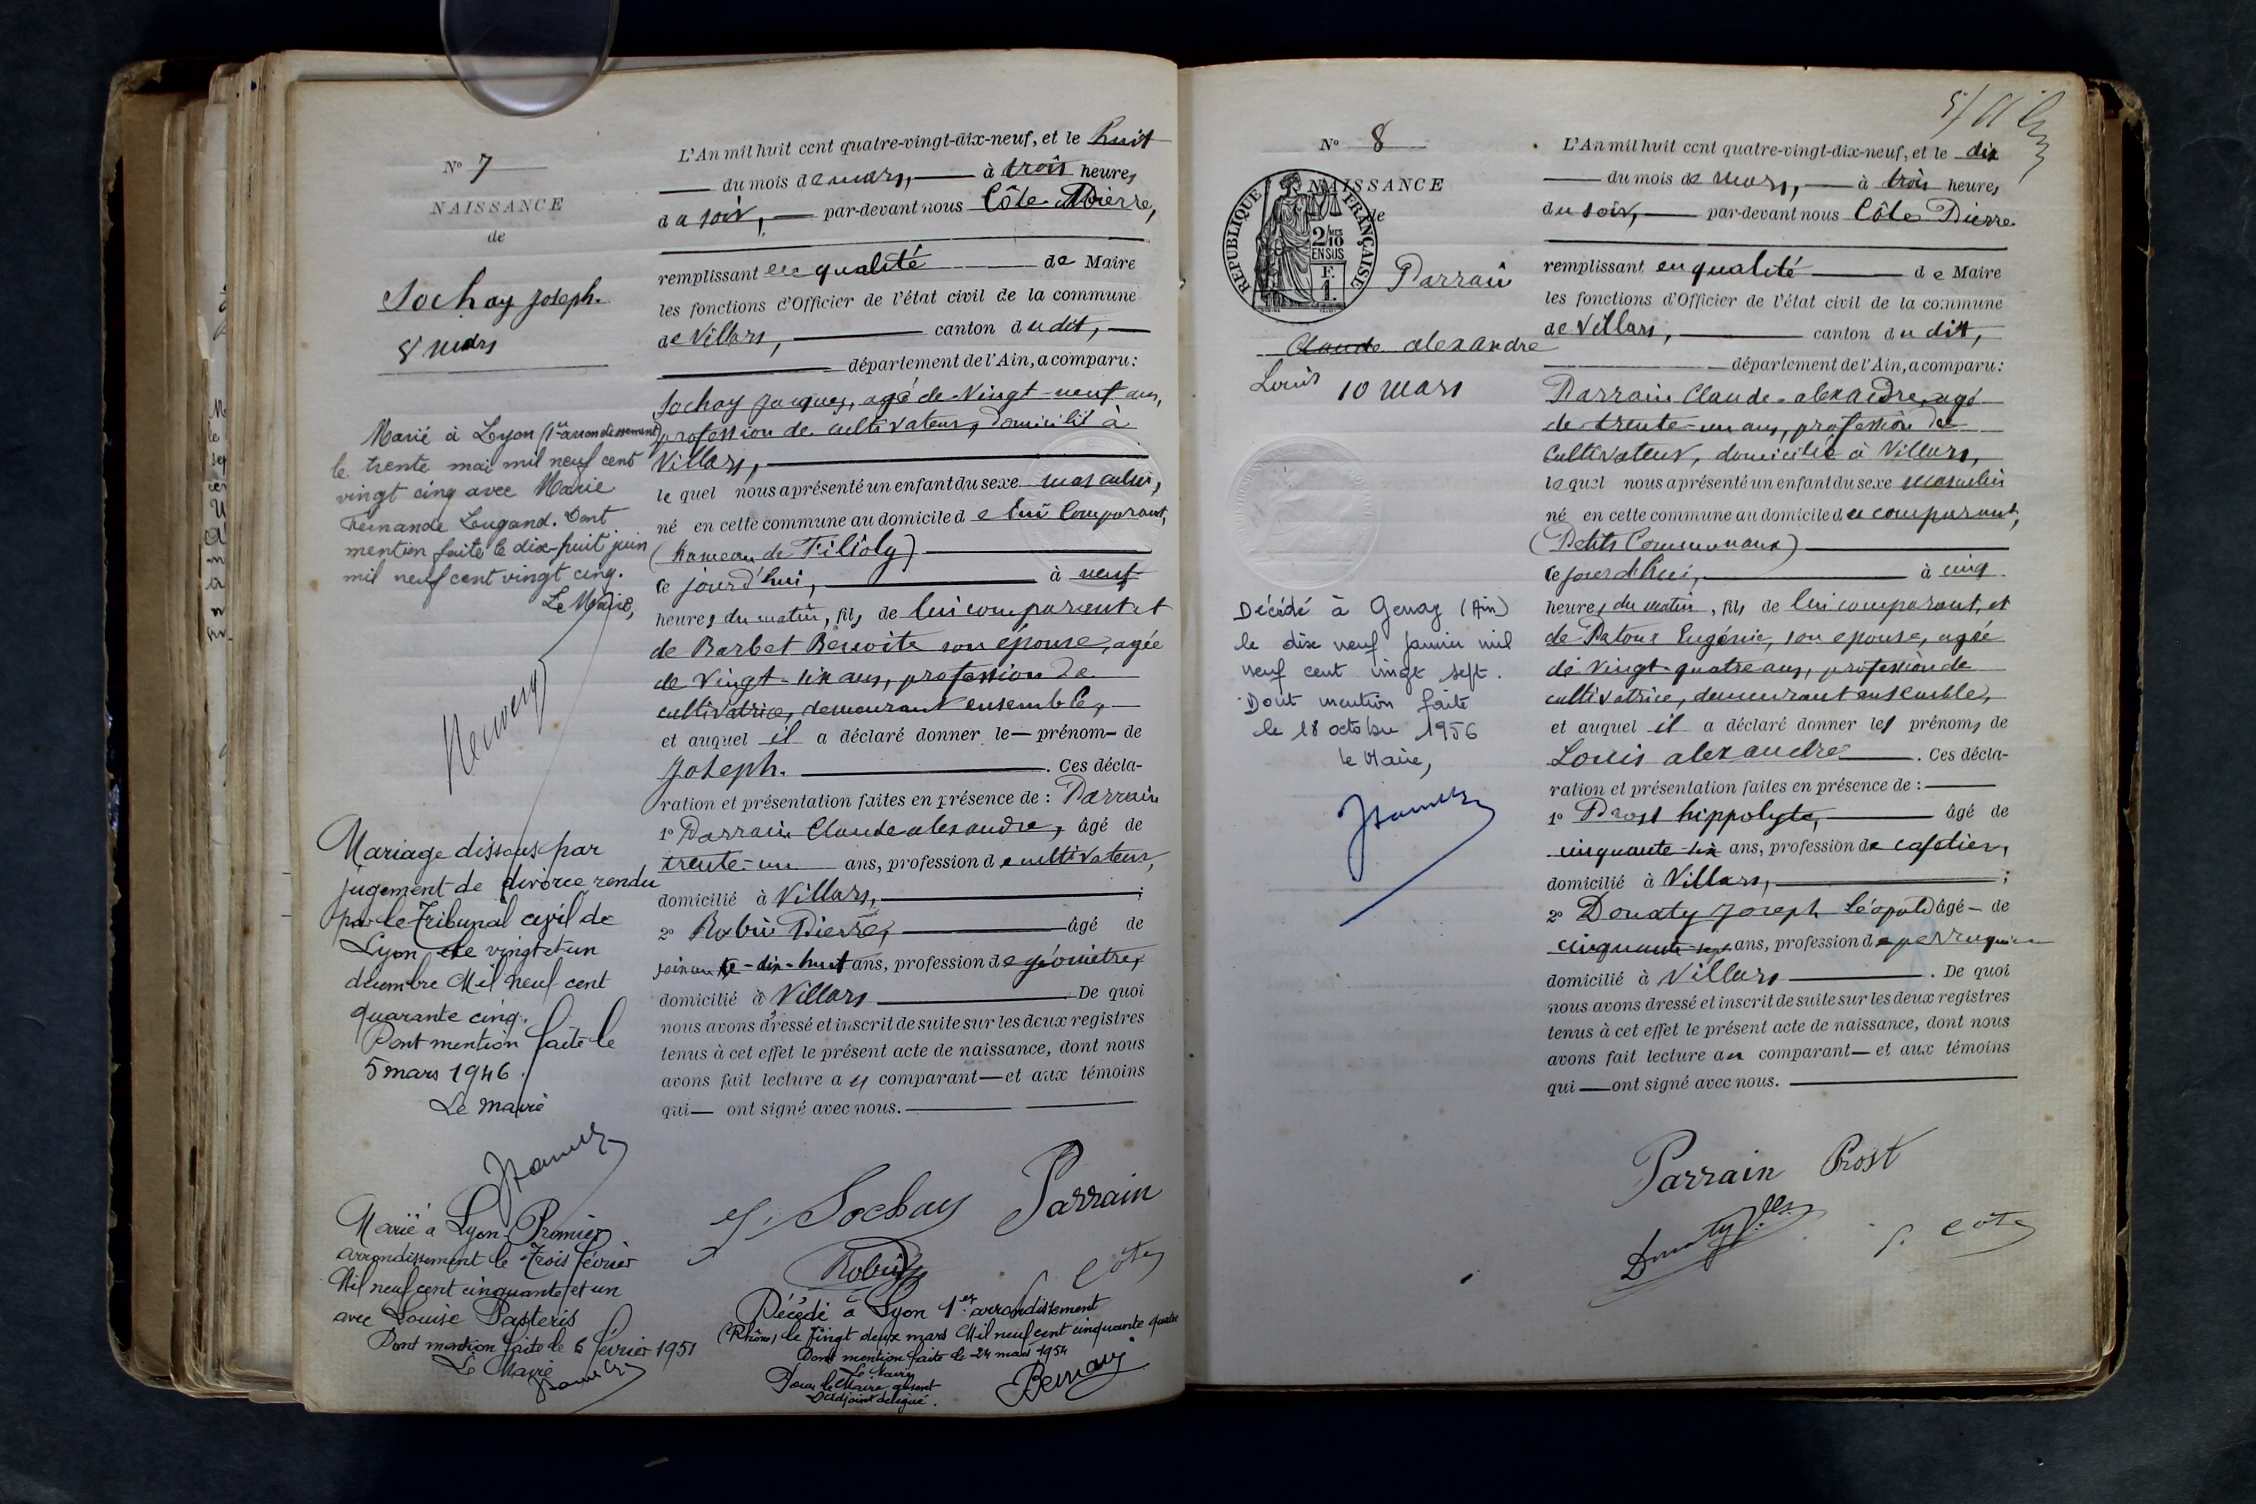 N° 7
NAISSANCE
de
Sochay Joseph.
8 mars
Marié à Lyon (1er arrondissement)
le trente mai mil neuf cent
vingt cinq avec Marie
Fernande Lugand. Dont
mention faite le dix-huit juin
mil neuf cent vingt cinq.
Le Maire,
Mariage dissous par
jugement de divorce rendu
par le Tribunal civil de
Lyon le vingt et un
décembre Mil neuf cent
quarante cinq.
Dont mention faite le
5 mars 1946.
Le maire
Marié à Lyon Premier
arrondissement le Trois février
Mil neuf cent cinquante et un
avec Louise Pasteris
Dont mention faite le 6 février 1951
Le Maire
L'An mil huit cent quatre-vingt-dix-neuf, et le huit
du mois de mars, à trois heures
du soir, par-devant nous Côte Pierre,
remplissant en qualité de Maire
les fonctions d'Officier de l'état civil de la commune
de Villars, canton dudit,
département de l'Ain, a comparu:
Sochay Jacques, agé de Vingt-neuf ans,
profession de cultivateur, domicilié à
Villars,
le quel nous a présenté un enfant du sexe masculin,
né en cette commune au domicile de lui Comparant,
(hameau de Filioly)
ce jourd'hui, à neuf
heures du matin, fils de lui comparant et
de Barbet Benoite son épouse, agée
de Vingt-six ans, profession de
cultivatrice, demeurant ensemble,
et auquel il a déclaré donner le prénom de
Joseph. Ces décla-
ration et présentation faites en présence de : Parrain
1° Parrain Claude alexandre, âgé de
trente-un ans, profession de cultivateur,
domicilié à Villars, ;
2° Robin Pierre, âgé de
soixante-dix-huit ans, profession de géomètre,
domicilié à Villars De quoi
nous avons dressé et inscrit de suite sur les deux registres
tenus à cet effet le présent acte de naissance, dont nous
avons fait lecture au comparant et aux témoins
qui ont signé avec nous.
J. Sochay Parrain
Robin P. Côte
Décédé à Lyon 1er arrondissement
(Rhône) le Vingt deux mars Mil neuf cent cinquante quatre
Dont mention faite le 24 mars 1954
Le Maire
Pour le Maire absent
L'Adjoint délégué.
N° 8
NAISSANCE
de
REPUBLIQUE FRANÇAISE
2/10 MES
EN SUS
F.
1.
Parrain
Claude alexandre
Louis 10 mars
Décédé à Genay (Ain)
le dix neuf janvier mil
neuf cent vingt sept.
Dont mention faite
le 18 octobre 1956
le Maire,
L'An mil huit cent quatre-vingt-dix-neuf, et le dix
du mois de mars, à trois heures
du soir, par-devant nous Côte Pierre
remplissant en qualité de Maire
les fonctions d'Officier de l'état civil de la commune
de Villars, canton dudit,
département de l'Ain, a comparu:
Parrain Claude-alexandre, agé
de trente-un ans, profession de
Cultivateur, domicilié à Villars,
lequel nous a présenté un enfant du sexe masculin
né en cette commune au domicile du comparant,
(Petits Communaux)
ce jourd'hui, à cinq
heures du matin, fils de lui comparant, et
de Patoux Eugénie, son epouse, agée
de Vingt-quatre ans, profession de
cultivatrice, demeurant ensemble,
et auquel il a déclaré donner les prénoms de
Louis alexandre. Ces décla-
ration et présentation faites en présence de :
1° Prost hippolyte, âgé de
cinquante-six ans, profession de cafetier,
domicilié à Villars, ;
2° Donaty Joseph Léopold âgé de
cinquante-sept ans, profession de perruquier
domicilié à Villars. De quoi
nous avons dressé et inscrit de suite sur les deux registres
tenus à cet effet le présent acte de naissance, dont nous
avons fait lecture au comparant et aux témoins
qui ont signé avec nous.
Parrain Prost
Donaty P. Côte